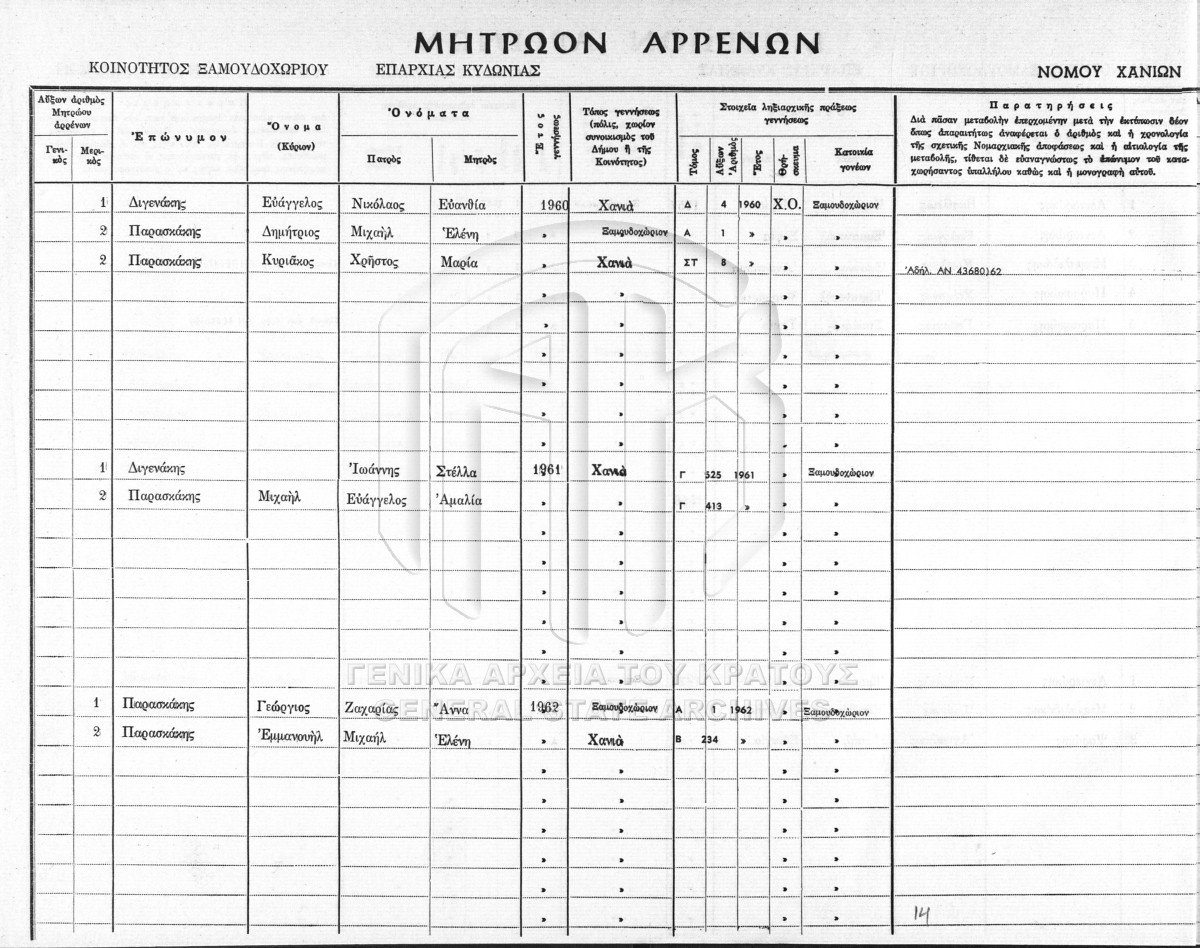 ΜΗΤΡΩΟΝ ΑΡΡΕΝΩΝ
ΚΟΙΝΟΤΗΤΟΣ ΞΑΜΟΥΔΟΧΩΡΙΟΥ ΕΠΑΡΧΙΑΣ ΚΥΔΩΝΙΑΣ ΝΟΜΟΥ ΧΑΝΙΩΝ
Αὔξων ἀριθμὸς Μητρώου ἀρρένων
Γενικὸς Μερικὸς
Ἐπώνυμον
Ὄνομα (Κύριον)
Ὀνόματα
Πατρὸς Μητρὸς
Ἔτος γεννήσεως
Τόπος γεννήσεως (πόλις, χωρίον συνοικισμὸς τοῦ Δήμου ἢ τῆς Κοινότητος)
Στοιχεῖα ληξιαρχικῆς πράξεως γεννήσεως
Τόμος Αὔξων Ἀριθμὸς Ἔτος Θρήσκευμα Κατοικία γονέων
Παρατηρήσεις
Διὰ πᾶσαν μεταβολὴν ἐπερχομένην μετὰ τὴν ἐκτύπωσιν δέον
ὅπως ἀπαραιτήτως ἀναφέρεται ὁ ἀριθμὸς καὶ ἡ χρονολογία
τῆς σχετικῆς Νομαρχιακῆς ἀποφάσεως καὶ ἡ αἰτιολογία τῆς
μεταβολῆς, τίθεται δὲ εὐαναγνώστως τὸ ἐπώνυμον τοῦ καταχωρήσαντος ὑπαλλήλου καθὼς καὶ ἡ μονογραφὴ αὐτοῦ.
1 Διγενάκης Εὐάγγελος Νικόλαος Εὐανθία 1960 Χανιὰ Δ 4 1960 Χ.Ο. Ξαμουδοχώριον
2 Παρασκάκης Δημήτριος Μιχαὴλ Ἑλένη » Ξαμουδοχώριον Α 1 » » »
2 Παρασκάκης Κυριᾶκος Χρῆστος Μαρία » Χανιὰ ΣΤ 8 » » » Ἀδήλ. ΑΝ 43680)62
» » » »
» » » »
» » » »
» » » »
» » » »
» » » »
1 Διγενάκης Ἰωάννης Στέλλα 1961 Χανιὰ Γ 525 1961 » Ξαμουδοχώριον
2 Παρασκάκης Μιχαὴλ Εὐάγγελος Ἀμαλία » » Γ 413 » » »
» » » »
» » » »
» » » »
» » » »
» » » »
» » » »
ΓΕΝΙΚΑ ΑΡΧΕΙΑ ΤΟΥ ΚΡΑΤΟΥΣ
GENERAL STATE ARCHIVES
1 Παρασκάκης Γεώργιος Ζαχαρίας Ἄννα 1962 Ξαμουδοχώριον Α 1 1962 » Ξαμουδοχώριον
2 Παρασκάκης Ἐμμανουὴλ Μιχαήλ Ἑλένη » Χανιὰ Β 234 » » »
» » » »
» » » »
» » » »
» » » »
» » » »
» » » »
14